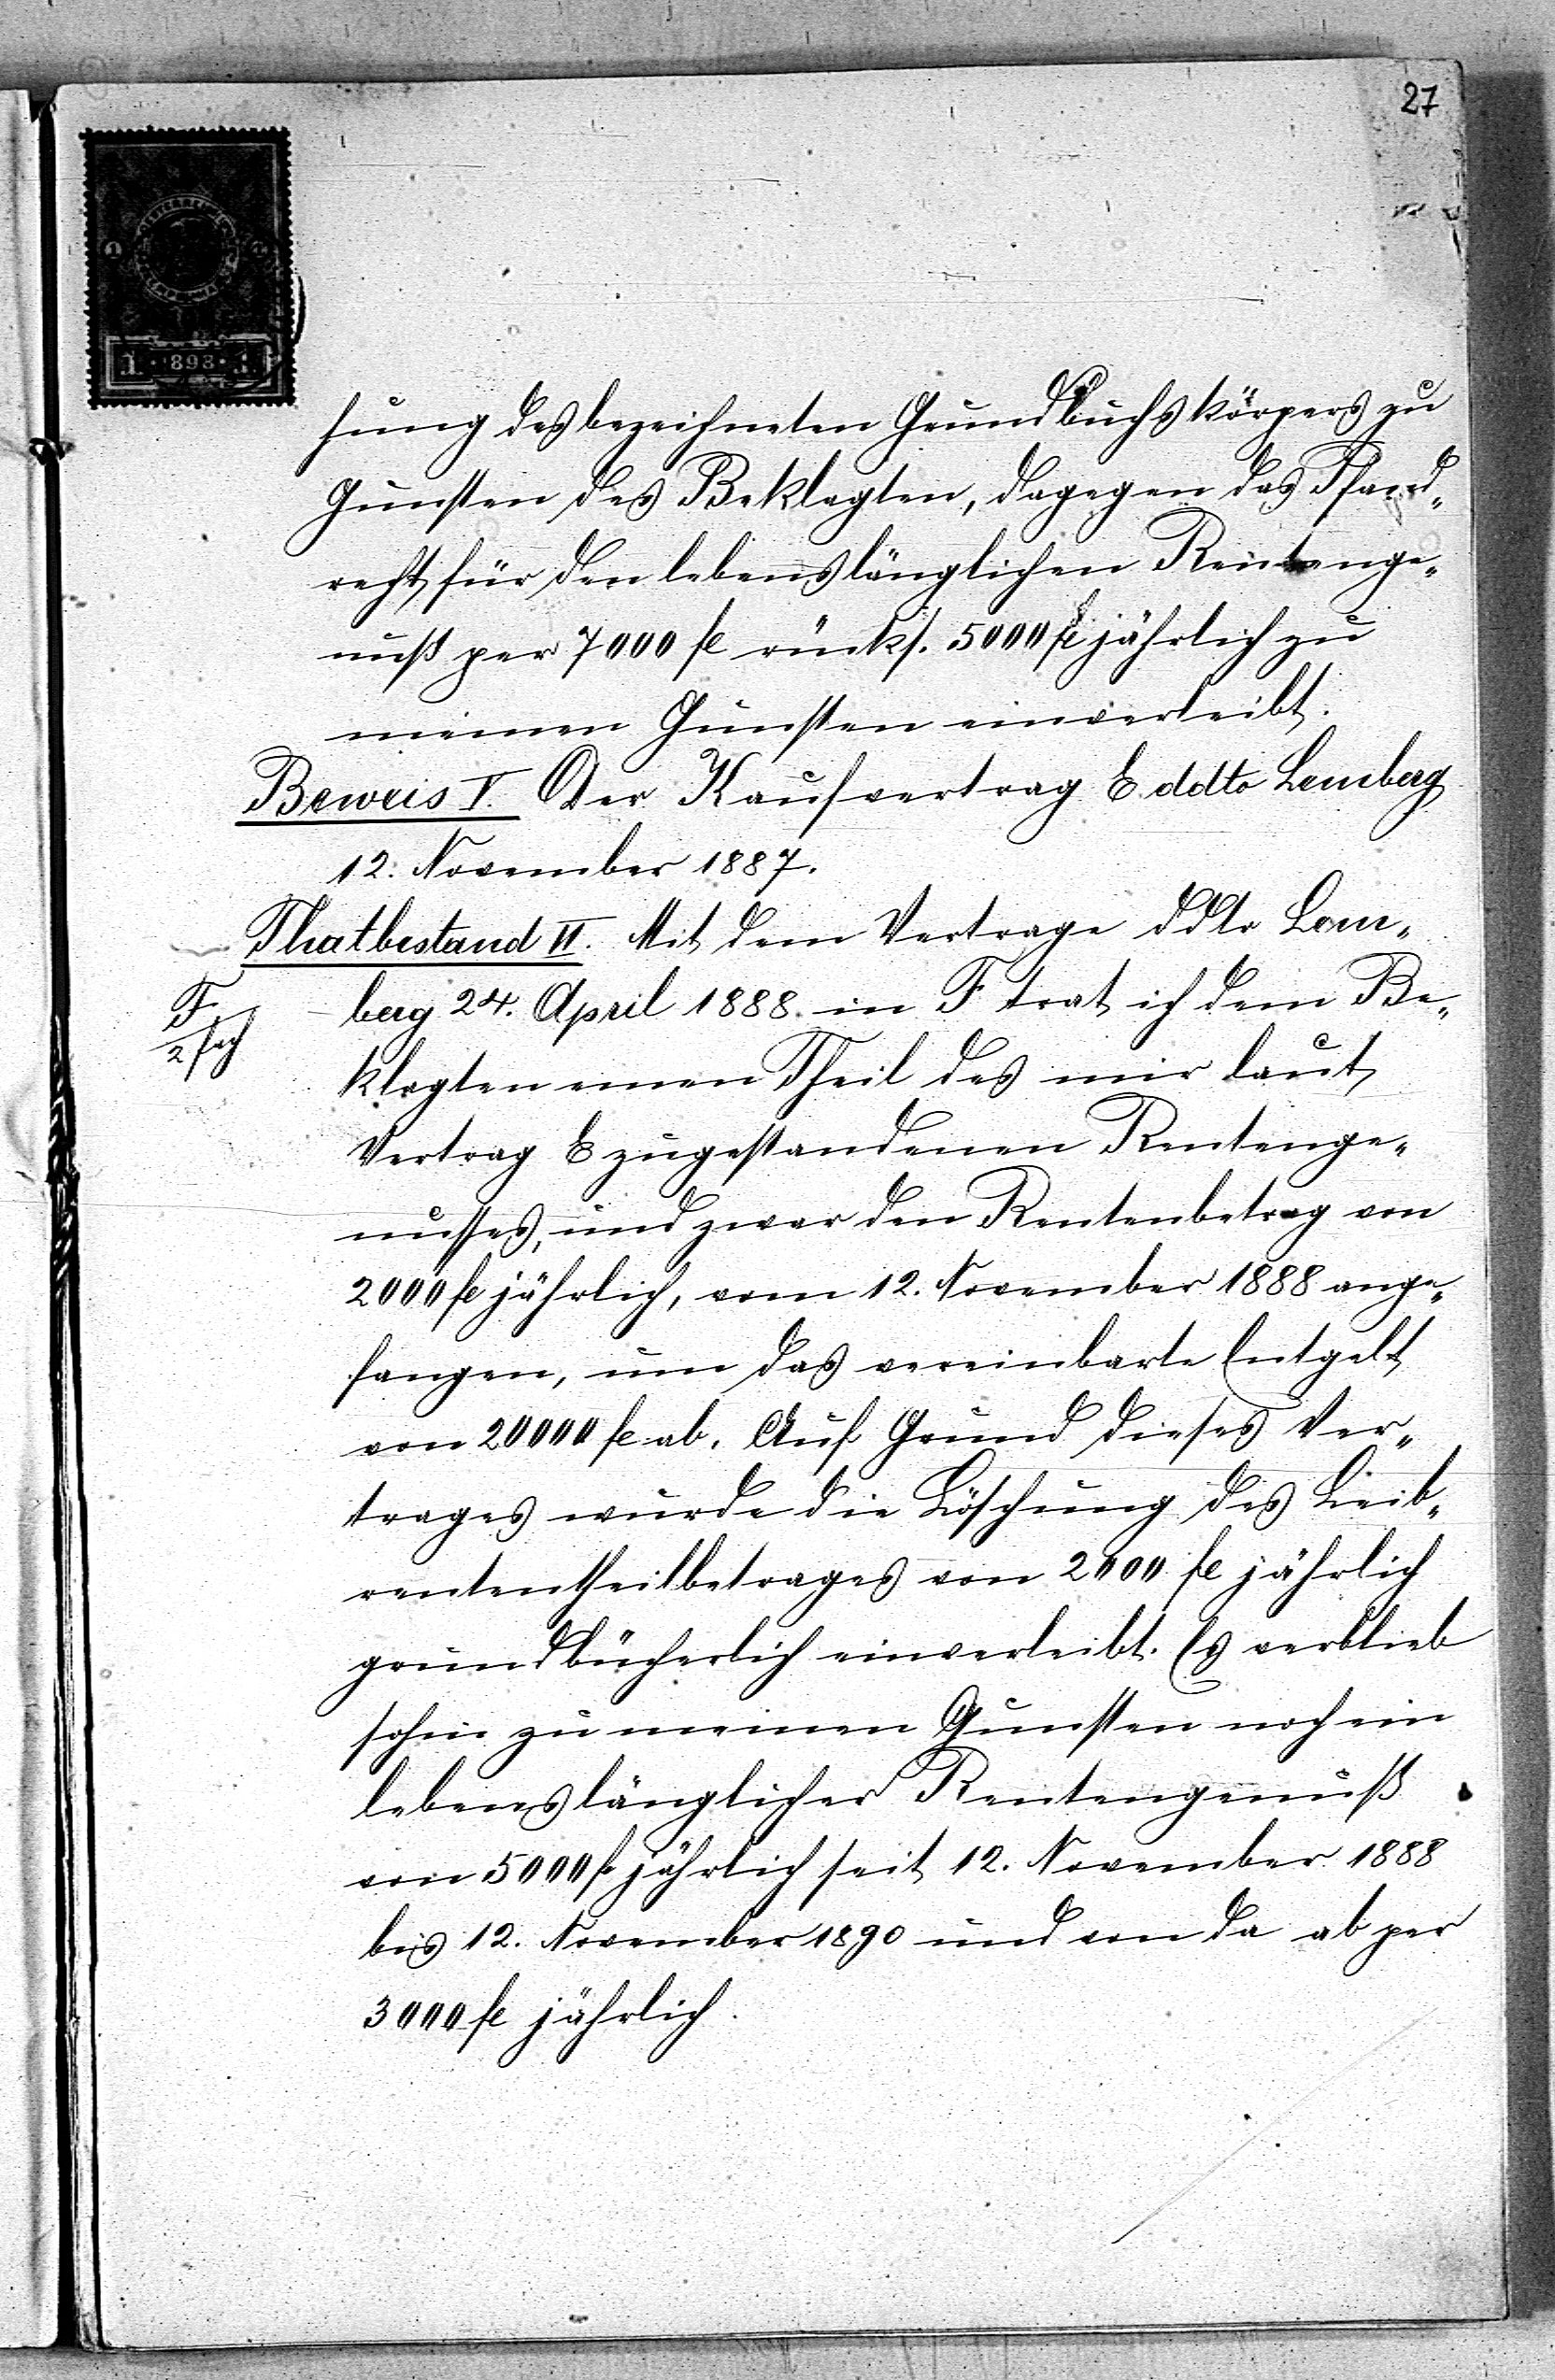 27
1 · 1898 · 1
hung des bezeichneten Grundbuchskörpers zu
Gunsten des Beklagten, dagegen das Pfand„
recht für den lebenslänglichen Rentenge„
nuß per 7000 fl rücks. 5000 fl jährlich zu
meinen Gunsten einverleibt.
Beweis V. Der Kaufvertrag E ddto Lemberg
12. November 1887.
Thatbestand VI. Mit dem Vertrage ddto Lem„
F
2fach
berg 24. April 1888 in F trat ich dem Be„
klagten einen Theil des mir laut
Vertrag E zugestandenen Rentenge„
nusses, und zwar den Rentenbetrag von
2000 fl jährlich, vom 12. November 1888 ange„
fangen, um das vereinbarte Entgelt
von 20000 fl ab. Auf Grund dieses Ver„
trages wurde die Löschung des Leib„
rententheilbetrages von 2000 fl jährlich
grundbücherlich einverleibt. Es verblieb
sohin zu meinen Gunsten noch ein
lebenslänglicher Rentengenuß
von 5000 fl jährlich seit 12. November 1888
bis 12. November 1890 und von da ab per
3000 fl jährlich.